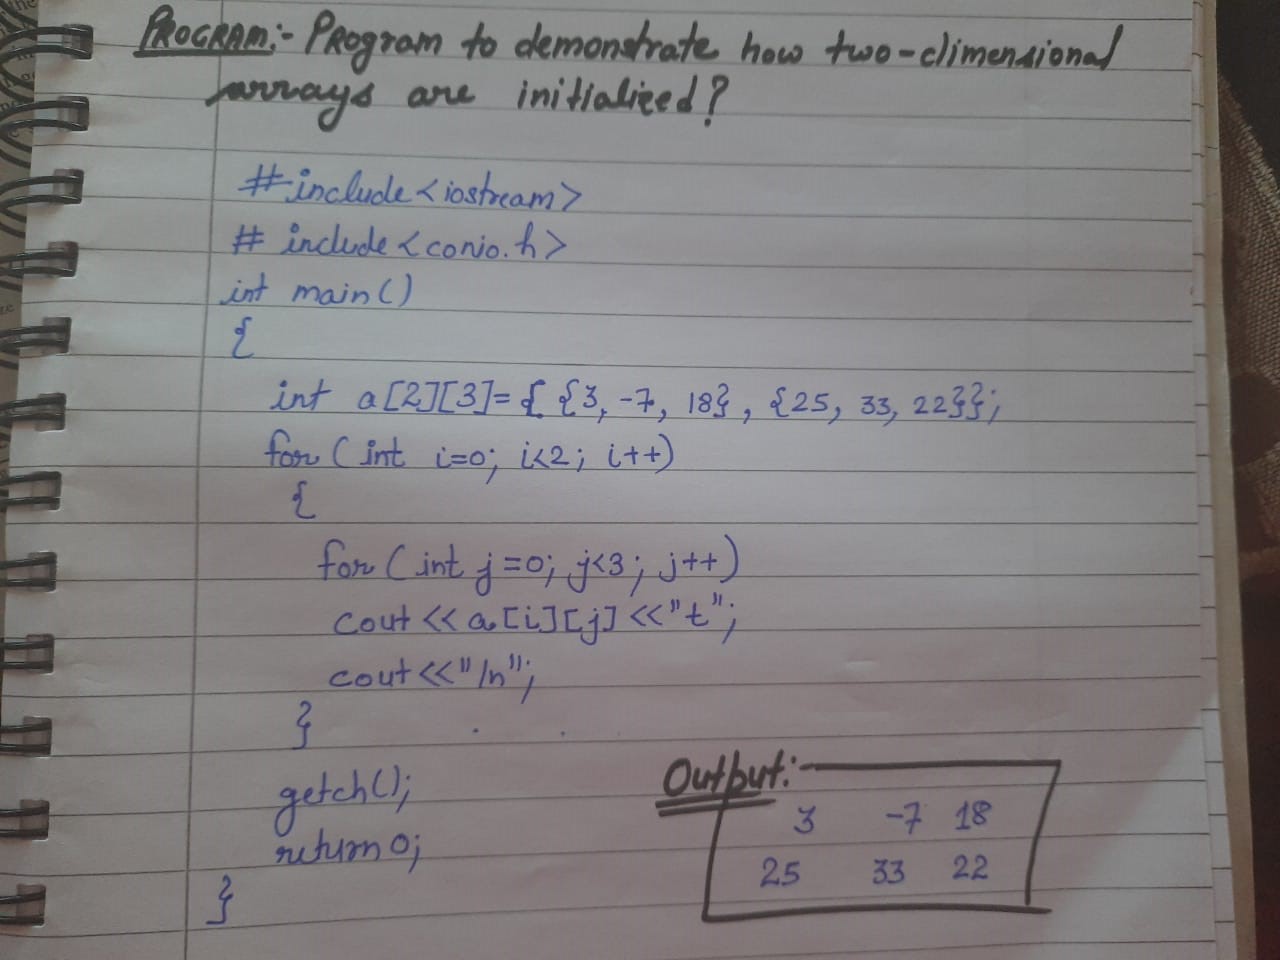 PROGRAM:- Program to demonstrate how two-dimensional
arrays are initialized?
#include<iostream>
# include<conio.h>
int main()
{
int a[2][3]={ {3, -7, 18} , {25, 33, 22}};
for( int i=0; i<2; i++)
{
for( int j=0; j<3; j++)
cout<<a[i][j]<<"t";
cout<<"/n";
}
getch();
return 0;
}
Output:-
3 -7 18
25 33 22